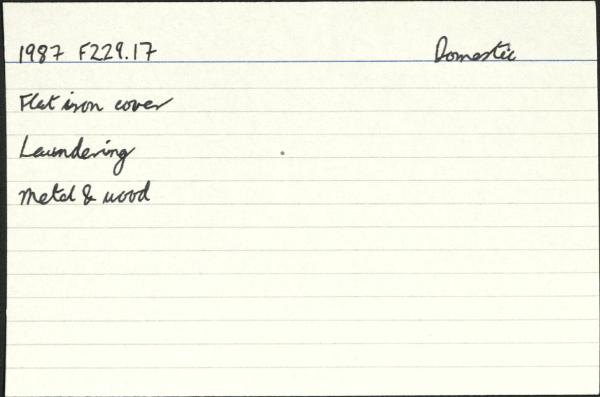 1987 F229.17 Domestic
Flat iron cover
Laundering
Metal & wood